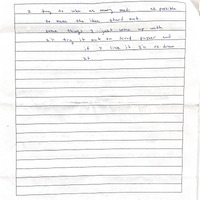 I try to use as many of possible
to make the idea stand out
some things I just come up with
I'll try it out on lined paper and
if I like it I'll re draw
it